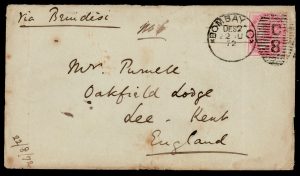 via Brindisi
No 6
BOMBAY
DE 2
72
C
8
Mr. Purnell
Oakfield Lodge
Lee - Kent
England